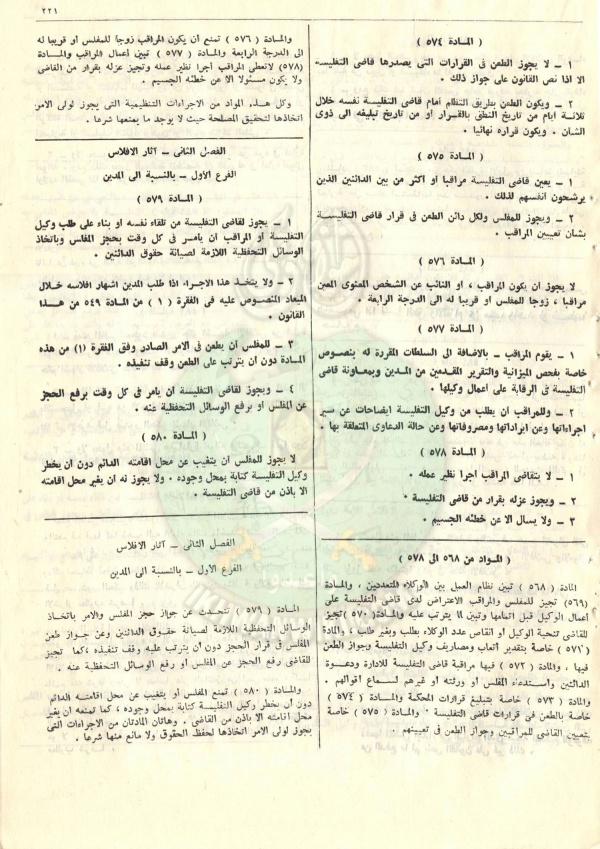 ٢٢١
( المادة ٥٧٤ )
١ ـ لا يجوز الطعن فى القرارات التى يصدرها قاضى التفليسة
الا اذا نص القانون على جواز ذلك .
٢ ـ ويكون الطعن بطريق التظلم أمام قاضى التفليسة نفسه خلال
ثلاثة أيام من تاريخ النطق بالقرار او من تاريخ تبليغه الى ذوى
الشأن . ويكون قراره نهائيا .
( المادة ٥٧٥ )
١ ـ يعين قاضى التفليسة مراقبا او أكثر من بين الدائنين الذين
يرشحون انفسهم لذلك .
٢ ـ ويجوز للمفلس ولكل دائن الطعن فى قرار قاضى التفليسة
بشأن تعيين المراقب .
( المادة ٥٧٦ )
لا يجوز ان يكون المراقب ، او النائب عن الشخص المعنوى المعين
مراقبا ، زوجا للمفلس او قريبا له الى الدرجة الرابعة .
( المادة ٥٧٧ )
١ ـ يقوم المراقب ـ بالاضافة الى السلطات المقررة له بنصوص
خاصة بفحص الميزانية والتقرير المقدمين من المدين وبمعاونة قاضى
التفليسة فى الرقابة على أعمال وكيلها .
٢ ـ وللمراقب ان يطلب من وكيل التفليسة ايضاحات عن سير
اجراءاتها وعن ايراداتها ومصروفاتها وعن حالة الدعاوى المتعلقة بها .
( المادة ٥٧٨ )
١ ـ لا يتقاضى المراقب اجرا نظير عمله .
٢ ـ ويجوز عزله بقرار من قاضى التفليسة .
٣ ـ ولا يسال الا عن خطئه الجسيم .
( المواد من ٥٦٨ الى ٥٧٨ )
المادة (٥٦٨) تبين نظام العمل بين الوكلاء المتعددين ، والمادة
(٥٦٩) تجيز للمفلس والمراقب الاعتراض لدى قاضى التفليسة على
أعمال الوكيل قبل اتمامها وتبين ما يترتب عليه والمادة (٥٧٠) تجيز
للقاضى تنحية الوكيل او انقاص عدد الوكلاء بطلب وبغير طلب ، والمادة
(٥٧١) خاصة بتقدير أتعاب ومصاريف وكيل التفليسة وجواز الطعن
فيها ، والمادة (٥٧٢) فيها مراقبة قاضى التفليسة للادارة ودعوة
الدائنين واستدعاء المفلس أو ورثته او غيرهم لسماع أقوالهم .
(٥٧٣) خاصة بتبليغ قرارات المحكمة والمادة (٥٧٤)
خاصة بالطعن فى قرارات قاضى التفليسة . والمادة (٥٧٥) خاصة
بتعيين القاضى للمراقبين وجواز الطعن فى تعيينهم .
والمادة (٥٧٦) تمنع أن يكون المراقب زوجا للمفلس أو قريبا له
الى الدرجة الرابعة والمادة (٥٧٧) تبين أعمال المراقب والمادة
(٥٧٨) لاتعطى المراقب اجرا نظير عمله وتجيز عزله بقرار من القاضى
ولا يكون مسئولا الا عن خطئه الجسيم .
وكل هذه المواد من الاجراءات التنظيمية التى يجوز لولى الامر
اتخاذها لتحقيق المصلحة حيث لا يوجد ما يمنعها شرعا .
الفصل الثانى ـ آثار الافلاس
الفرع الأول ـ بالنسبة الى المدين
( المادة ٥٧٩ )
١ ـ يجوز لقاضى التفليسة من تلقاء نفسه او بناء على طلب وكيل
التفليسة او المراقب ان يامر فى كل وقت بحجز المفلس وباتخاذ
الوسائل التحفظية اللازمة لصيانة حقوق الدائنين .
٢ ـ ولا يتخذ هذا الاجراء اذا طلب المدين اشهار افلاسه خلال
الميعاد المنصوص عليه فى الفقرة ( ١ ) من المادة ٥٤٩ من هذا
القانون .
٣ ـ للمفلس أن يطعن فى الامر الصادر وفق الفقرة (١) من هذه
المادة دون أن يترتب على الطعن وقف تنفيذه .
٤ ـ ويجوز لقاضى التفليسة أن يامر فى كل وقت برفع الحجز
عن المفلس او برفع الوسائل التحفظية عنه .
( المادة ٥٨٠ )
لا يجوز للمفلس أن يتغيب عن محل اقامته الدائم دون أن يخطر
وكيل التفليسة كتابة بمحل وجوده . ولا يجوز له أن يغير محل اقامته
الا باذن من قاضى التفليسة .
الفصل الثانى ـ آثار الافلاس
الفرع الأول ـ بالنسبة الى المدين
المادة (٥٧٩) تتحدث عن جواز حجز المفلس والامر باتخاذ
الوسائل التحفظية اللازمة لصيانة حقوق الدائنين وعن جواز طعن
المفلس فى قرار الحجز دون أن يترتب عليه وقف تنفيذه ، كما تجيز
للقاضى رفع الحجز عن المفلس أو رفع الوسائل التحفظية عنه .
والمادة (٥٨٠) تمنع المفلس أو يتغيب عن محل اقامته الدائم
دون أن يخطر وكيل التفليسة كتابة بمحل وجوده ، كما تمنعه أن يغير
محل اقامته الا باذن من القاضى . وهاتان المادتان من الاجراءات التى
يجوز لولى الامر اتخاذها لحفظ الحقوق ولا مانع منها شرعا .